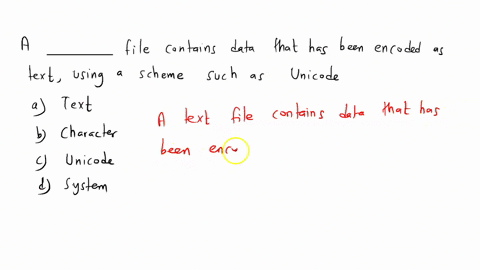 A ________ file contains data that has been encoded as
text, using a scheme such as Unicode
a) Text
b) Character
c) Unicode
d) System
A text file contains data that has
been enco